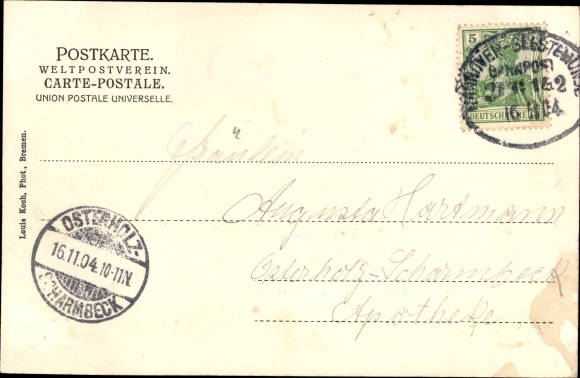 POSTKARTE.
WELTPOSTVEREIN.
CARTE-POSTALE.
UNION POSTALE UNIVERSELLE.
5
DEUTSCHES REICH
HANNOVER-GEESTEMÜNDE
BAHNPOST
16 11 04
Fräulein
Augusta Hartmann
Osterholz-Scharmbeck
Apotheke.
OSTERHOLZ-
16.11.04.10-11N.
SCHARMBECK
Louis Koch, Phot., Bremen.